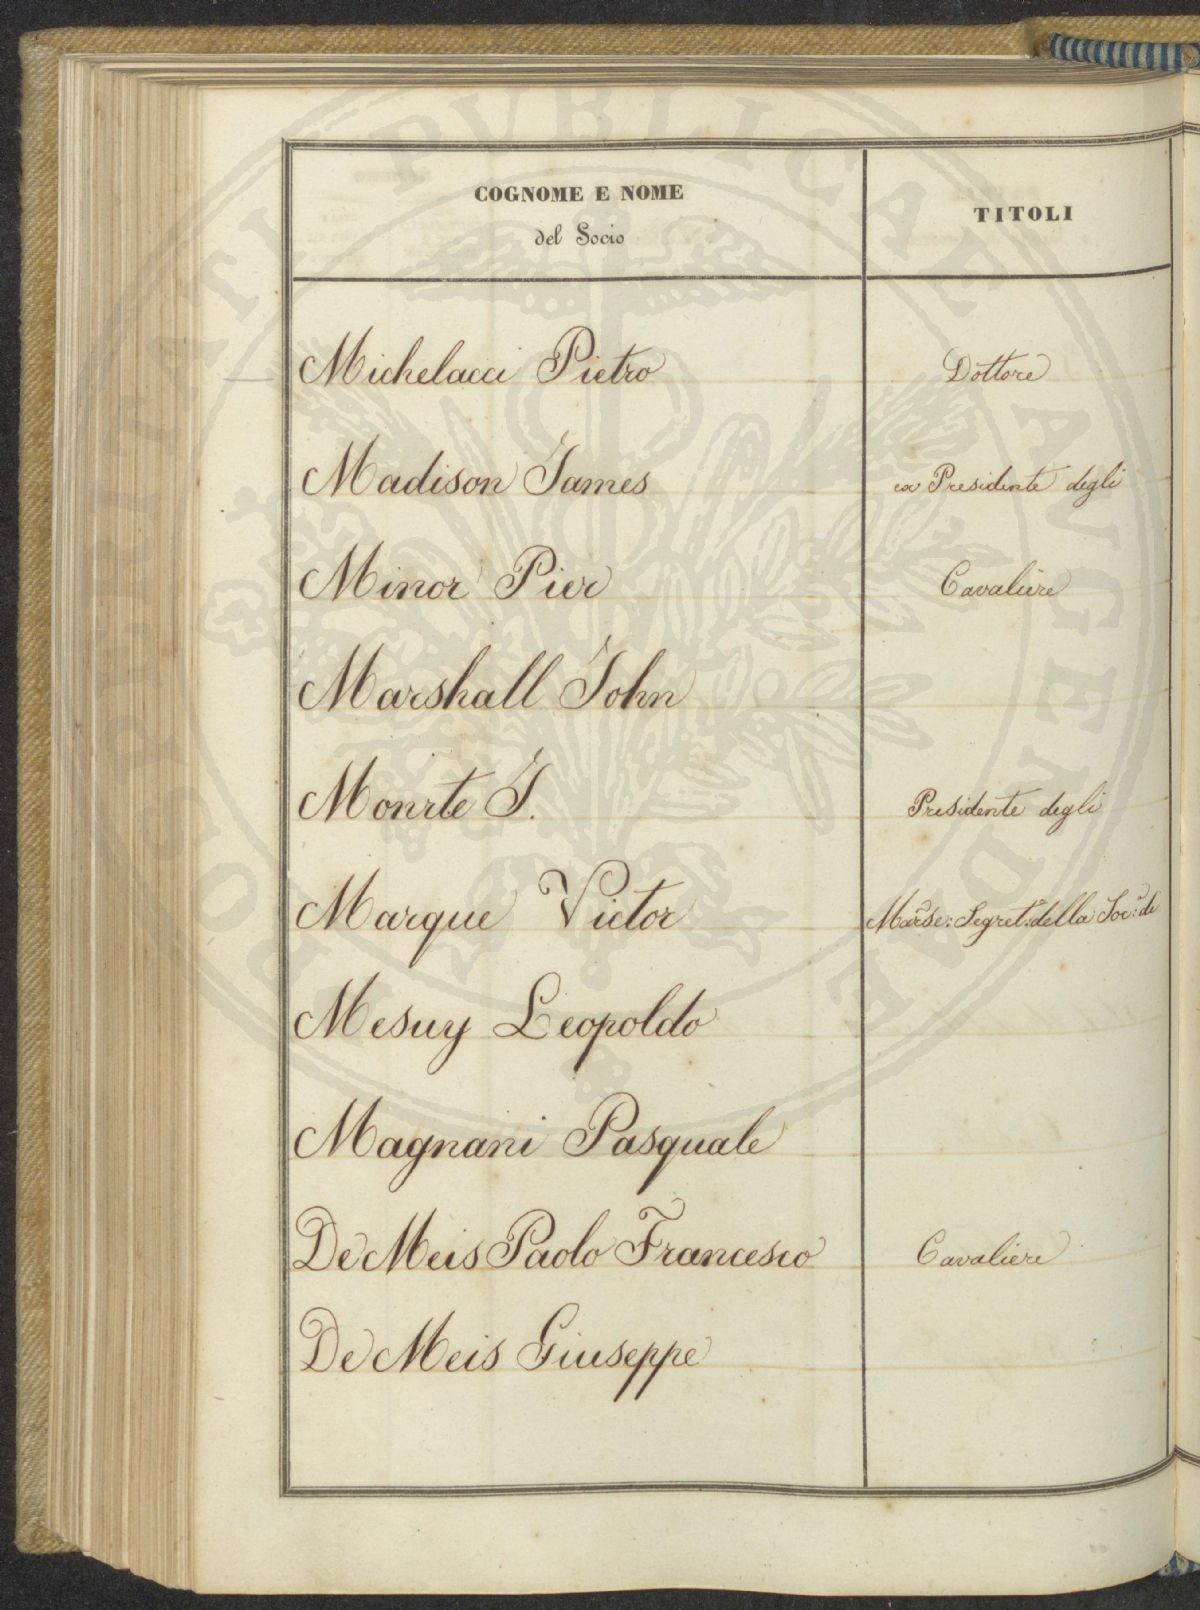 COGNOME E NOME
del Socio
TITOLI
Michelacci Pietro Dottore
Madison James ex Presidente degli
Minor Pier Cavaliere
Marshall John
Monrte J. Presidente degli
Marque Victor Marse: Segret: della Soc: di
Mesuy Leopoldo
Magnani Pasquale
De Meis Paolo Francesco Cavaliere
De Meis Giuseppe